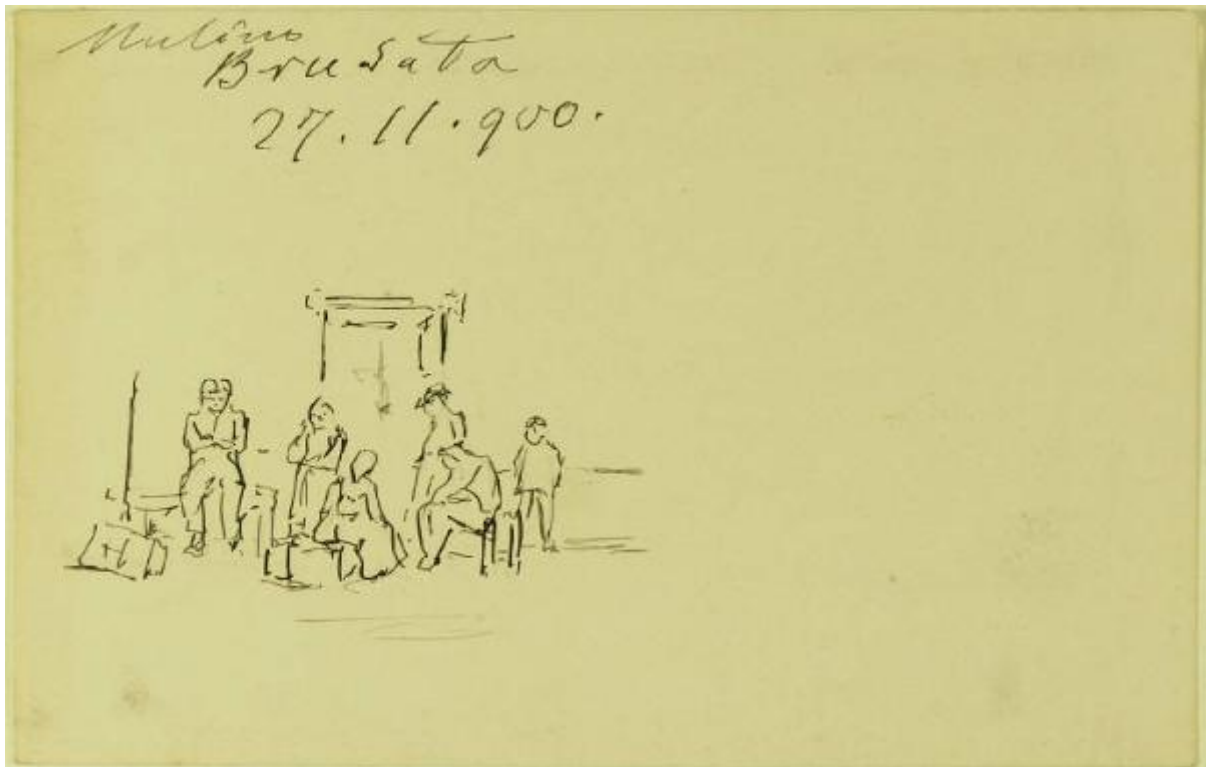 Mulino
Brusata
27.11.900.